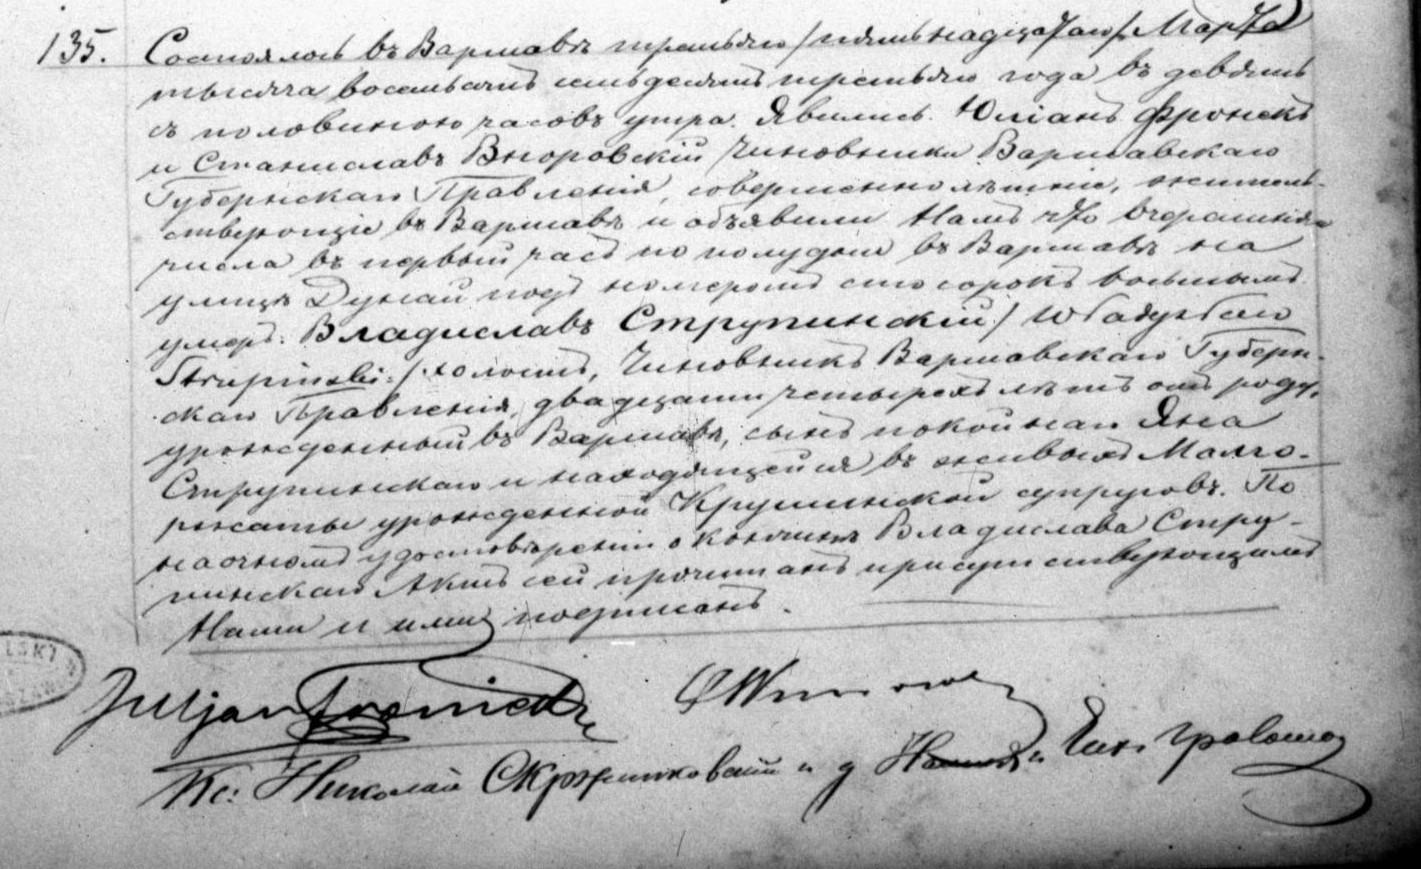 135. Состоялось въ Варшавѣ третьяго /пятьнадцатаго/ Марта
тысяча восемьсотъ семьдесятъ третьяго года въ девять
съ половиною часовъ утра. Явились Юліанъ Фронскъ
и Станиславъ Вноровскій Чиновники Варшавскаго
Губернскаго Правленія, совершеннолѣтніе, житель-
ствующіе въ Варшавѣ и объявили Намъ что вчерашняго
числа въ первый часъ по полудни въ Варшавѣ на
улицѣ Дунай подъ номеромъ сто сорокъ восьмымъ
умеръ Владиславъ Струпинскій /Władysław
Strupinski/ холостъ, Чиновникъ Варшавскаго Губерн-
скаго Правленія, двадцати четырехъ лѣтъ отъ роду,
урожденный въ Варшавѣ, сынъ покойнаго Яна
Струпинскаго и находящейся въ живыхъ Малго-
ржаты урожденной Крушинской супруговъ. По
наочномъ удостовѣреніи о кончинѣ Владислава Стру-
пинскаго Актъ сей прочитанъ присутствующимъ
Нами и ими подписанъ.
Juljan
Кс: Николай и д